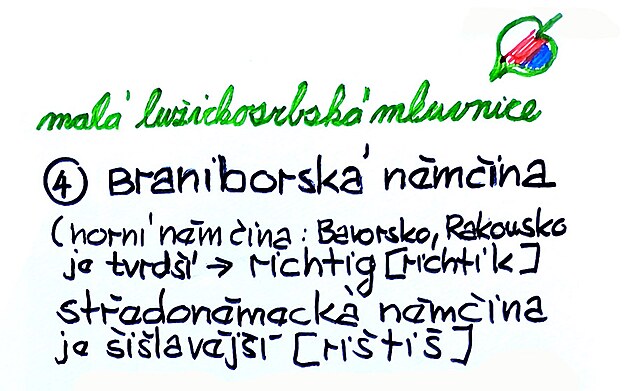 malá lužickosrbská mluvnice
④ Braniborská němčina
(horní němčina: Bavorsko, Rakousko
je tvrdší → richtig [richtik]
středoněmecká němčina
je šišlavější [rištiš]